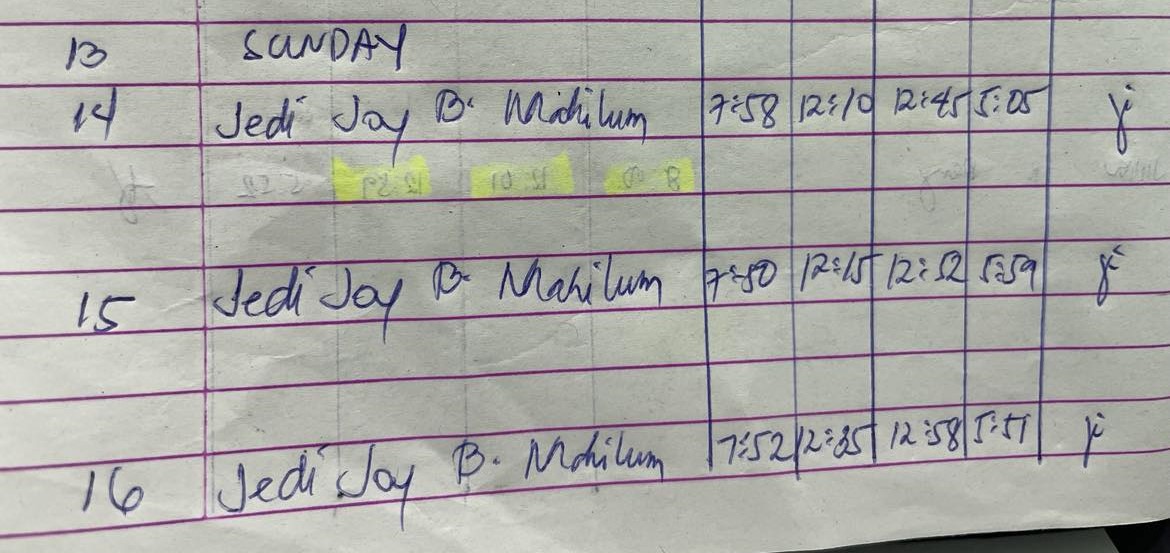 13 SUNDAY
14 Jedi Joy B. Mahilum 7:58 12:10 12:45 5:05
15 Jedi Joy B. Mahilum 7:50 12:15 12:52 5:59
16 Jedi Joy B. Mahilum 7:52 12:35 12:58 5:51